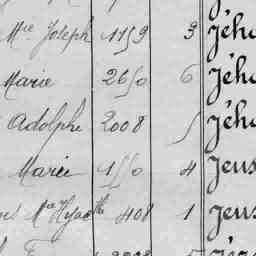 Mie Joseph 1159 3 Jého
Marie 2650 6 Jého
Adolphe 2008 5 Jého
Marie 1550 4 Jeus
Mie Hyacthe 408 1 Jeus